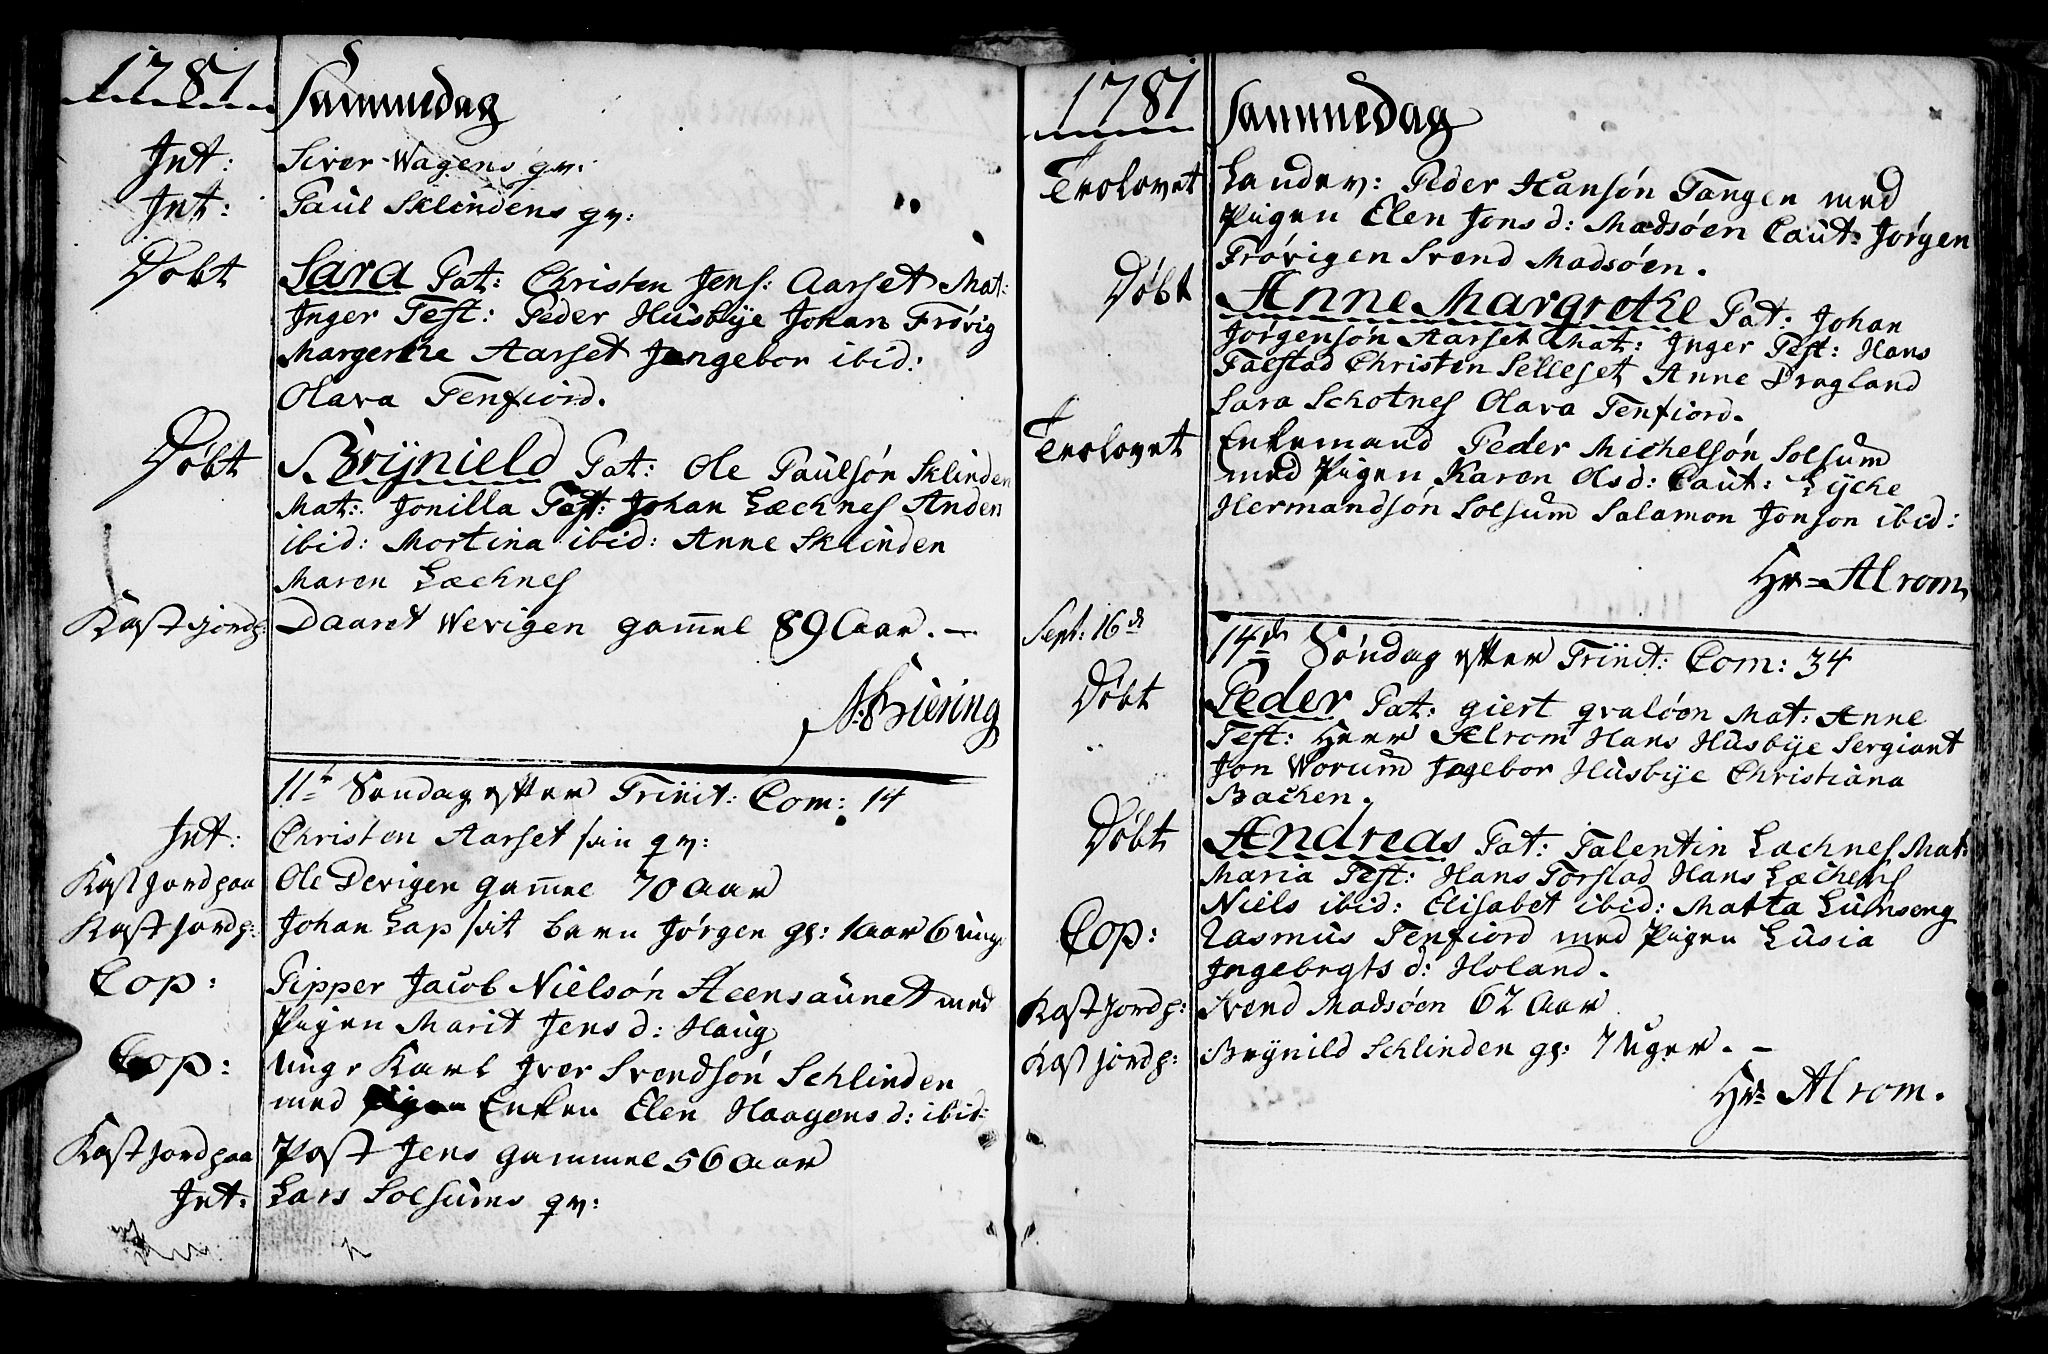 1781 Sammedag
Int: Siver Wagens qv:
Int: Paul Sklindens qv:
Døbt Sara Pat: Christen Jens: Aarset Mat:
Inger Test: Peder Husbÿe Johan Frøvig
Margerthe Aarset Jngebor ibid:
Olava Tenfiord.
Døbt Brÿnield Pat: Ole Paulsøn Sklinden
Mat: Jonilla Test: Johan Læchnes Anden
ibid: Mortina ibid: Anne Sklinden
Maren Læchnes
Kast jord p: Daaret Wevigen gam̄el 89 Aar. —
N: Biering
11te Søndag efter Triinit: Com: 14
Int: Christen Aarset sin qv:
Kast Jord paa Ole Devigen gam̄el 70 Aar
Kast Jord p: Johan Lap sit Barn Jørgen gl: 1 Aar 6 ug:
Cop: Pipper Jacob Nielsøn Steensaunet med
Pigen Marit Jens d: Haug
Cop: Ung Karl Iver Svendsøn Schlinden
med Enken Elen Haagens d: ibid:
Kast jord paa Post Jens gammel 56 Aar
Int: Lars Solsums qv:
1781 Sammedag
Trolovet Landev: Peder Hansøn Tangen med
Pigen Elen Jons d: Madsøen Caut: Jørgen
Frøvigen Svend Madsøen.
Døbt Anne Margrethe Pat: Johan
Jørgensøn Aarset Mat: Inger Test: Hans
Falstad Christen Selleset Anne Dragland
Sara Schotnes Olava Tenfiord.
Trolovet Enkemand Peder Michelsøn Solsum
med Pigen Karen Ols d: Caut: Lÿcke
Hermandsøn Solsum Salamon Jonson ibid:
Hr= Alrom
Sept: 16de 14de Søndag efter Triinit: Com: 34
Døbt Peder Pat: giert qvaløen Mat: Anne
Test: Herr Alrom Hans Husbÿe Sergiant
Jon Worum Ingebor Husbÿe Christiana
Bachen.
Døbt Andreas Pat: Falentin Lachnes Mat:
Maria Test: Hans Forstad Hans Læchens
Niels ibid: Elisabet ibid: Matta Lumseng
Cop: Rasmus Tenfiord med Pigen Lusia
Ingebrgts d: Holand.
Kast Jord p: Svend Madsøen 62 Aar
Kast Jord p: Brÿnild Schlinden gl: 7 Uger. —
Hr= Alrom.